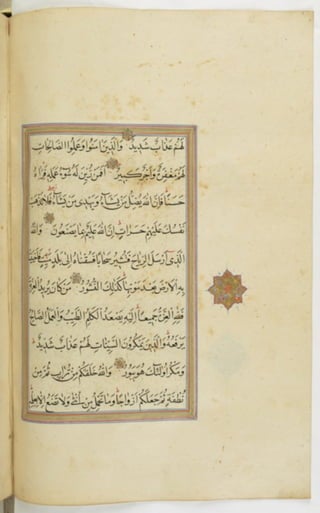 لَهُمْ عَذَابٌ شَدِيدٌ وَالَّذِينَ اٰمَنُوا وَعَمِلُوا الصَّالِحَاتِ
لَهُمْ مَغْفِرَةٌ وَاَجْرٌ كَبِيرٌ اَفَمَنْ زُيِّنَ لَهُ سُوءُ عَمَلِهِ فَرَاٰهُ
حَسَنًا فَاِنَّ اللهَ يُضِلُّ مَنْ يَشَاءُ وَيَهْدِى مَنْ يَشَاءُ فَلَا تَذْهَبْ
نَفْسُكَ عَلَيْهِمْ حَسَرَاتٍ اِنَّ اللهَ عَلِيمٌ بِمَا يَصْنَعُونَ وَاللهُ
الَّذِى اَرْسَلَ الرِّيَاحَ فَتُثِيرُ سَحَابًا فَسُقْنَاهُ اِلٰى بَلَدٍ مَيِّتٍ فَاَحْيَيْنَا
بِهِ الْاَرْضَ بَعْدَ مَوْتِهَا كَذٰلِكَ النُّشُورُ مَنْ كَانَ يُرِيدُ الْعِزَّةَ
فَلِلّٰهِ الْعِزَّةُ جَمِيعًا اِلَيْهِ يَصْعَدُ الْكَلِمُ الطَّيِّبُ وَالْعَمَلُ الصَّالِحُ
يَرْفَعُهُ وَالَّذِينَ يَمْكُرُونَ السَّيِّئَاتِ لَهُمْ عَذَابٌ شَدِيدٌ
وَمَكْرُ اُولٰئِكَ هُوَ يَبُورُ وَاللهُ خَلَقَكُمْ مِنْ تُرَابٍ ثُمَّ مِنْ
نُطْفَةٍ ثُمَّ جَعَلَكُمْ اَزْوَاجًا وَمَا تَحْمِلُ مِنْ اُنْثٰى وَلَا تَضَعُ اِلَّا بِعِلْمِهِ